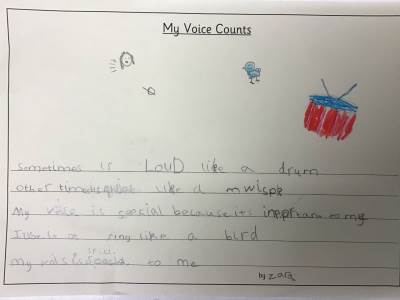 My Voice Counts
sometimes is LOUD like a drum
other times quiet like a wispr
My voise is special because its to my
I use to sing like a bird
my is to me
by zara